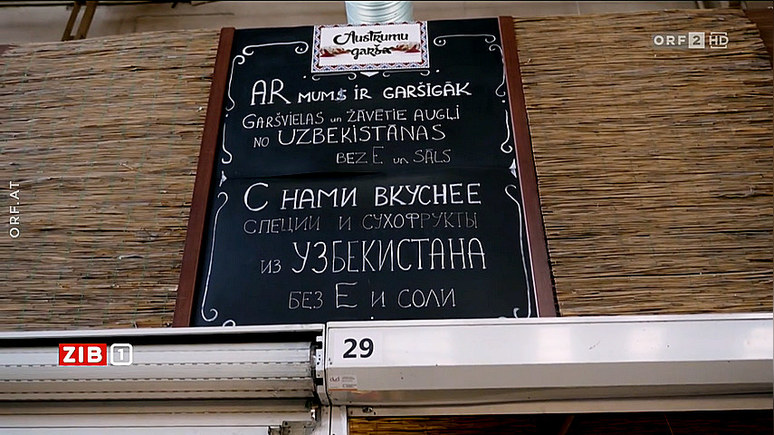 Austrumu
garša
AR MUMS IR GARŠĪGĀK
GARŠVIELAS un ŽĀVĒTIE AUGĻI
NO UZBEKISTĀNAS
BEZ E un SĀLS
С НАМИ ВКУСНЕЕ
СПЕЦИИ И СУХОФРУКТЫ
ИЗ УЗБЕКИСТАНА
БЕЗ Е И СОЛИ
29
ORF 2 HD
ORF.AT
ZIB 1